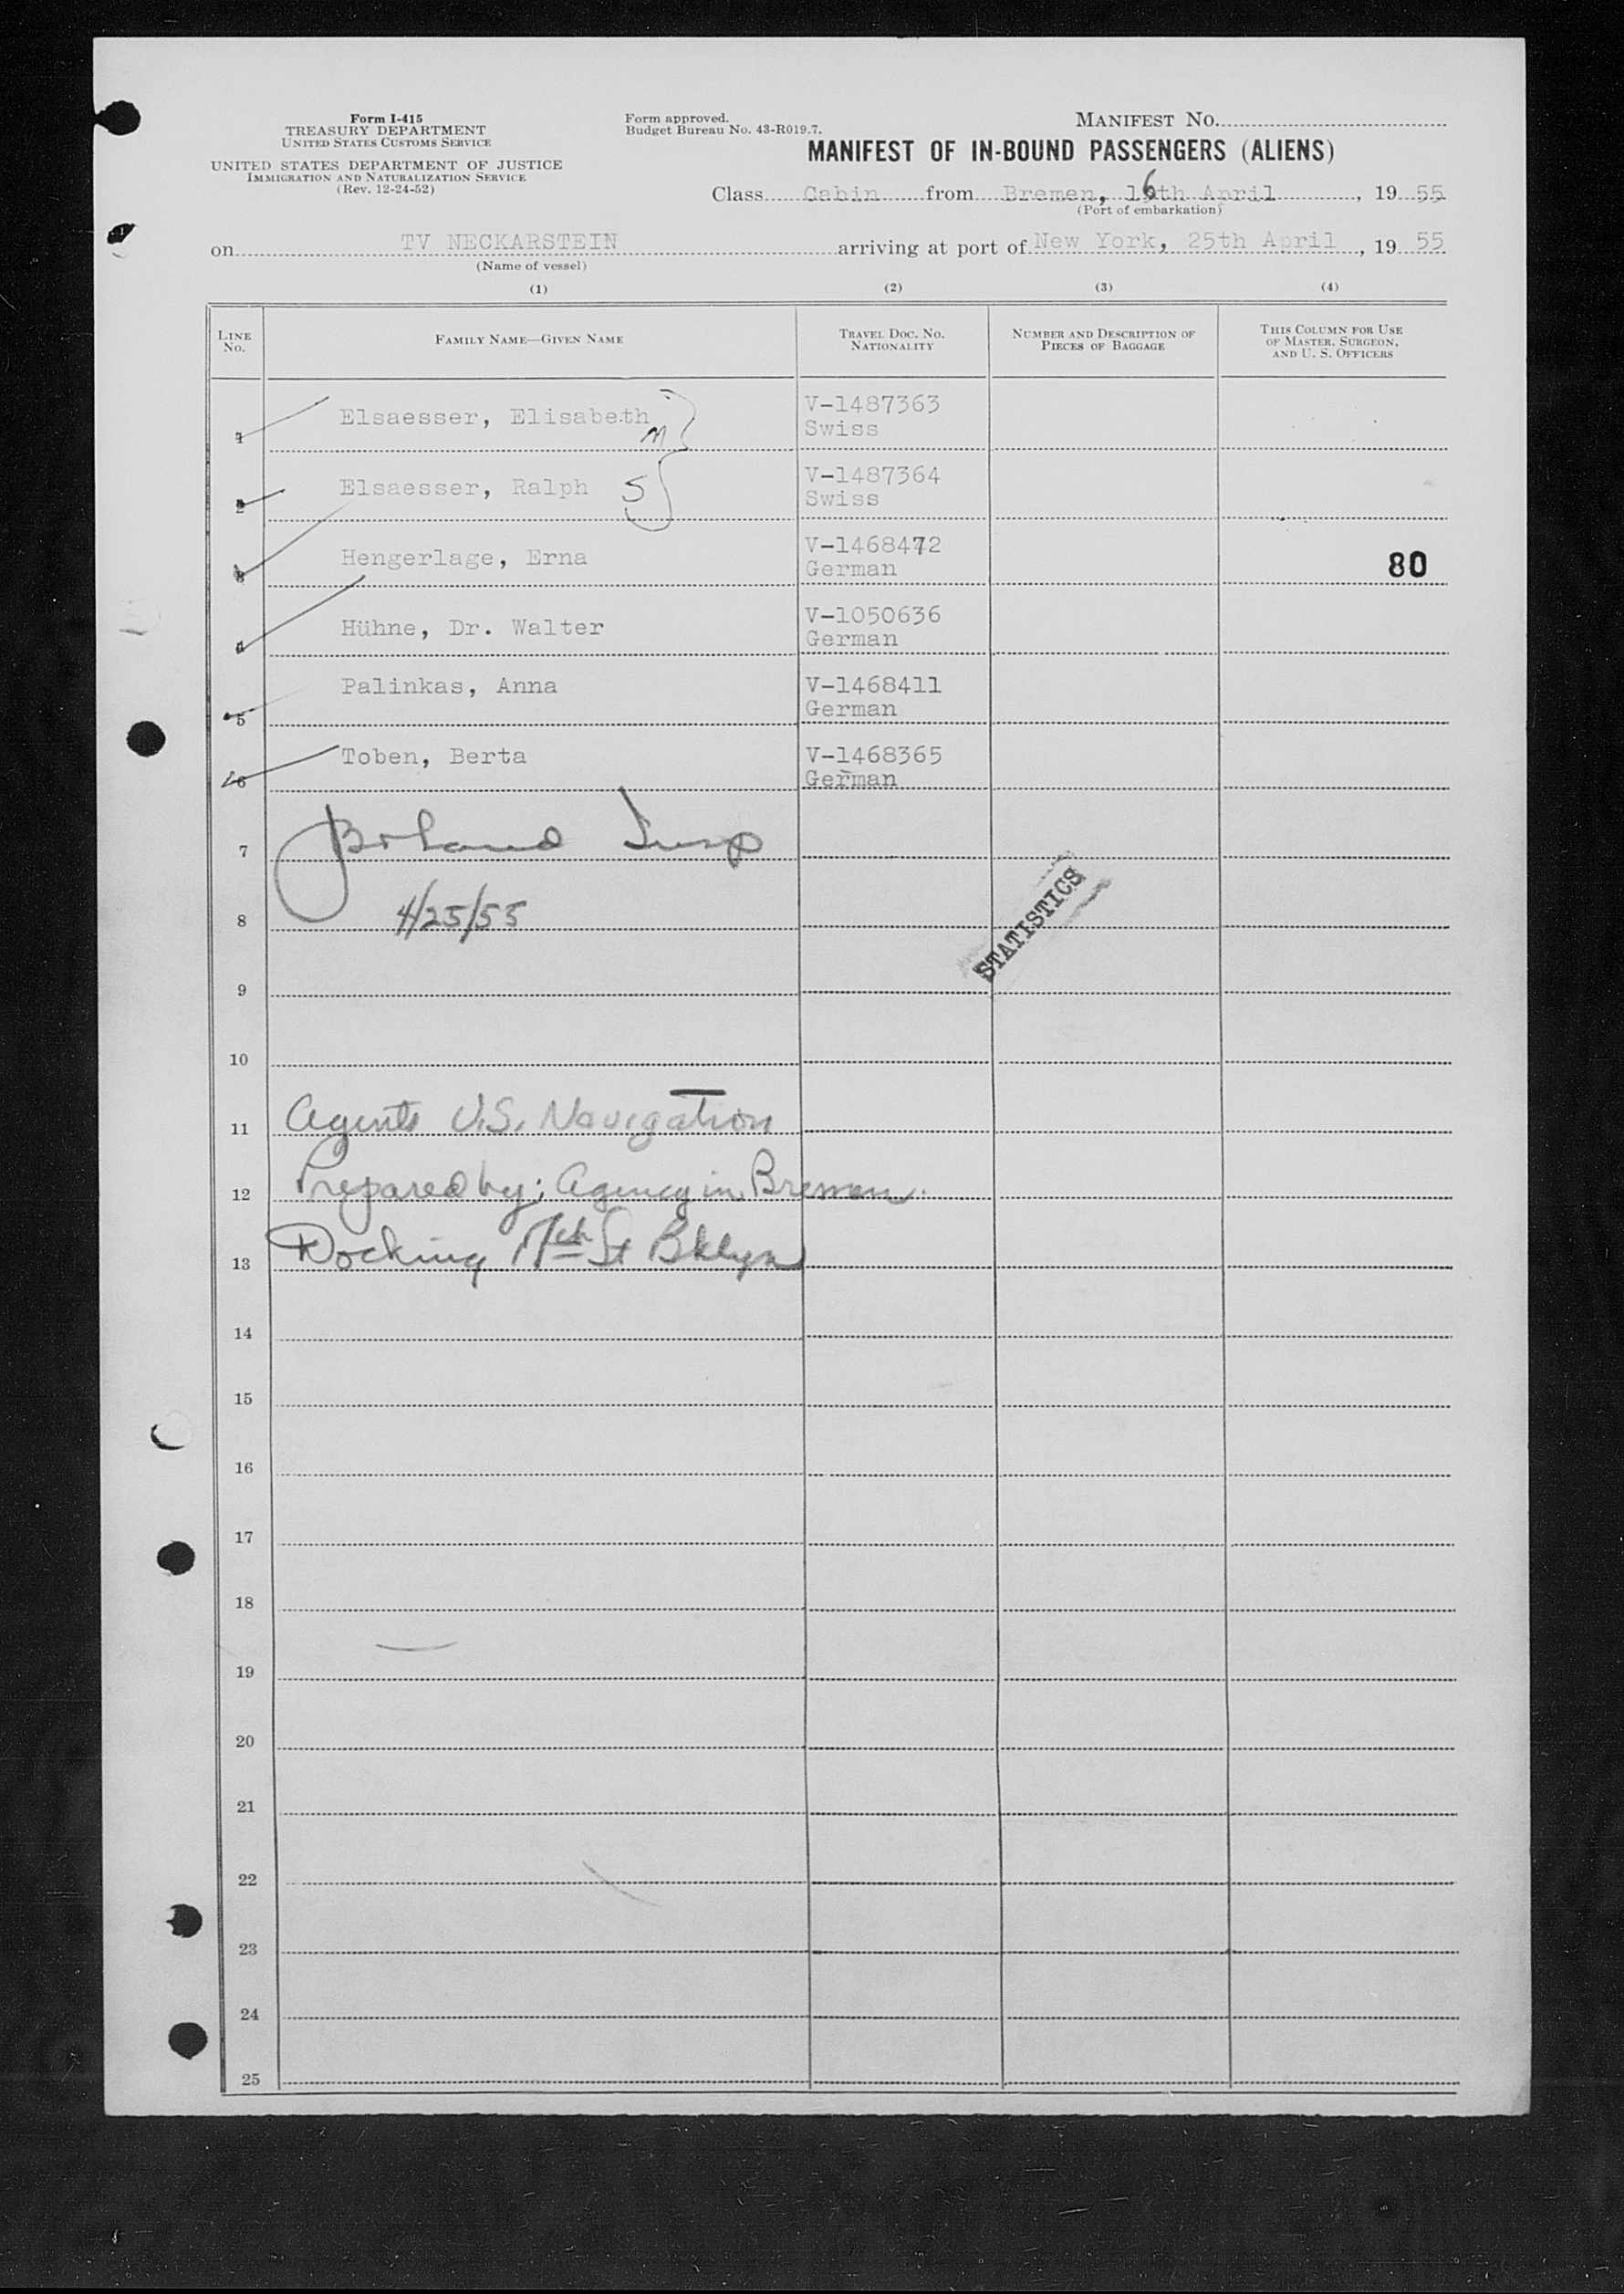 Form I-415
TREASURY DEPARTMENT
UNITED STATES CUSTOMS SERVICE
UNITED STATES DEPARTMENT OF JUSTICE
IMMIGRATION AND NATURALIZATION SERVICE
(Rev. 12-24-52)
Form approved.
Budget Bureau No. 43-R019.7.
MANIFEST NO.
MANIFEST OF IN-BOUND PASSENGERS (ALIENS)
Class Cabin from Bremen, 16th April, 19 55
(Port of embarkation)
on TV NECKARSTEIN arriving at port of New York, 25th April, 19 55
(Name of vessel)
(1) (2) (3) (4)
LINE NO. FAMILY NAME—GIVEN NAME TRAVEL DOC. NO. NATIONALITY NUMBER AND DESCRIPTION OF PIECES OF BAGGAGE THIS COLUMN FOR USE OF MASTER, SURGEON, AND U. S. OFFICERS
1 Elsaesser, Elisabeth M V-1487363
Swiss
2 Elsaesser, Ralph S V-1487364
Swiss
3 Hengerlage, Erna V-1468472
German 80
4 Hühne, Dr. Walter V-1050636
German
5 Palinkas, Anna V-1468411
German
6 Toben, Berta V-1468365
German
7 Insp
8 4/25/55
STATISTICS
9
10
11 Agents U.S. Navigation
12 Prepared by: Agency in Bremen.
13 Docking 17th St Bklyn
14
15
16
17
18
19
20
21
22
23
24
25